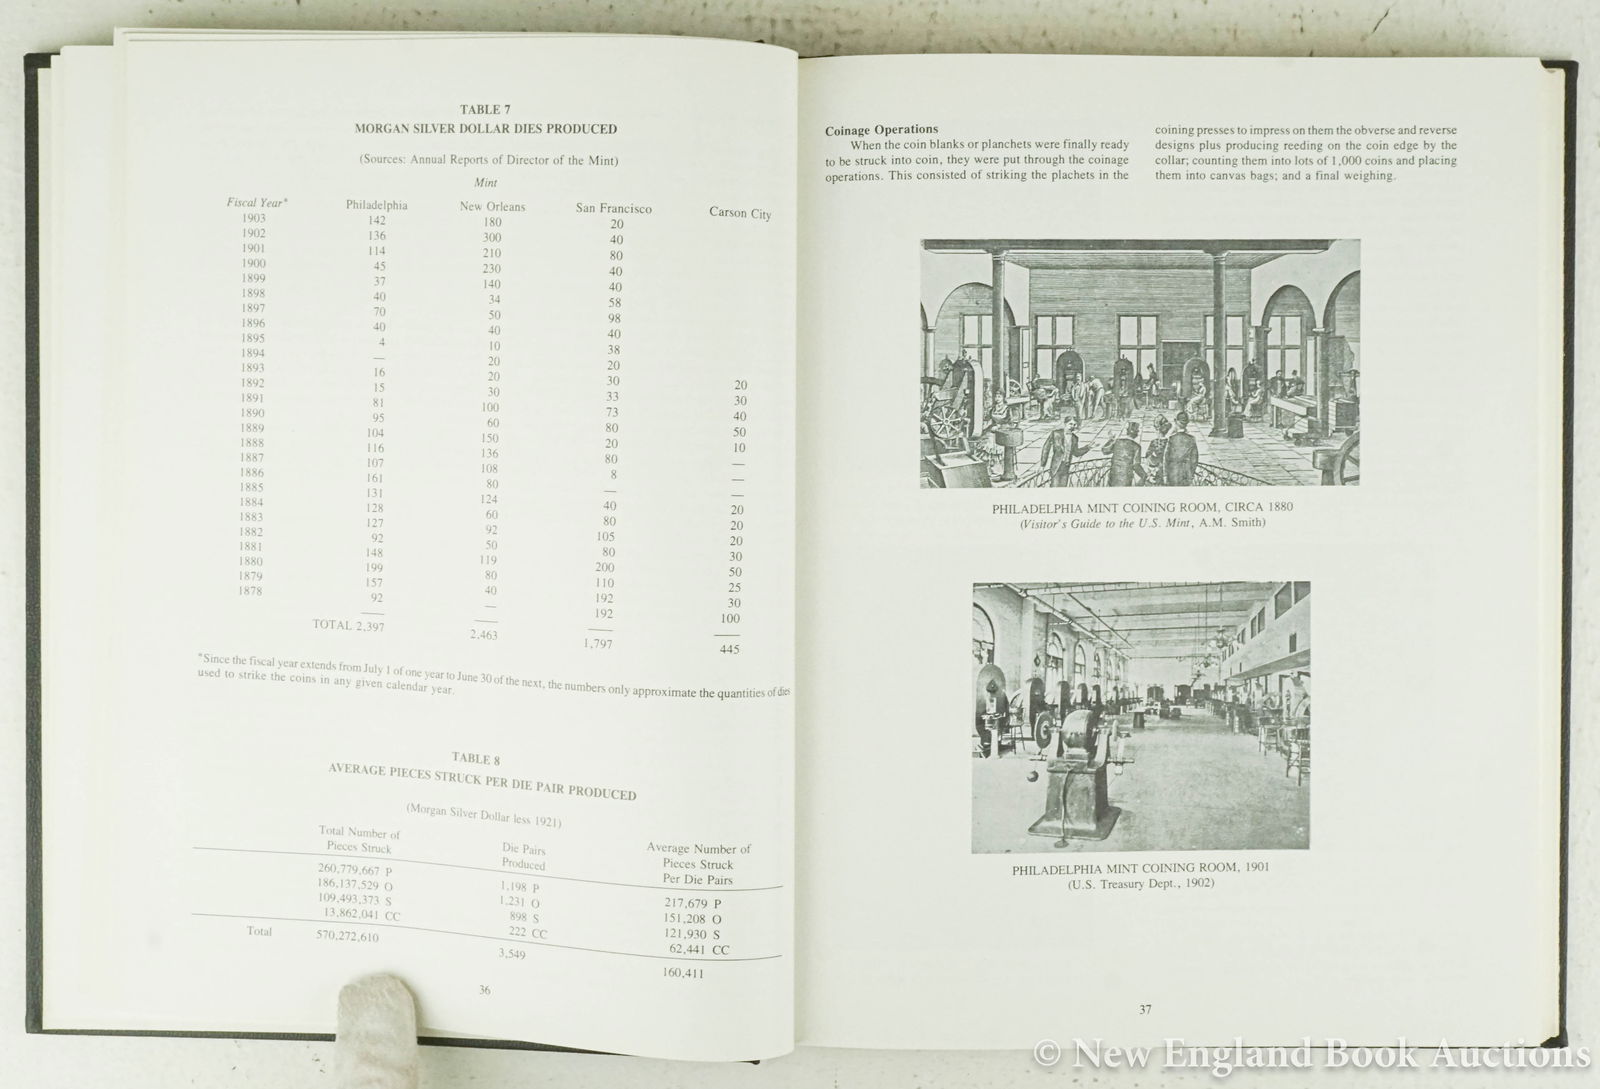 TABLE 7
MORGAN SILVER DOLLAR DIES PRODUCED
(Sources: Annual Reports of Director of the Mint)
Mint
Fiscal Year* Philadelphia New Orleans San Francisco Carson City
1903 142 180 20
1902 136 300 40
1901 114 210 80
1900 45 230 40
1899 37 140 40
1898 40 34 58
1897 70 50 98
1896 40 40 40
1895 4 10 38
1894 — 20 20
1893 16 20 30 20
1892 15 30 33 30
1891 81 100 73 40
1890 95 60 80 50
1889 104 150 20 10
1888 116 136 80 —
1887 107 108 8 —
1886 161 80 — —
1885 131 124 40 20
1884 128 60 80 20
1883 127 92 105 20
1882 92 50 80 30
1881 148 119 200 50
1880 199 80 110 25
1879 157 40 192 30
1878 92 — 192 100
TOTAL 2,397 2,463 1,797 445
*Since the fiscal year extends from July 1 of one year to June 30 of the next, the numbers only approximate the quantities of dies
used to strike the coins in any given calendar year.
TABLE 8
AVERAGE PIECES STRUCK PER DIE PAIR PRODUCED
(Morgan Silver Dollar less 1921)
Total Number of Pieces Struck Die Pairs Produced Average Number of Pieces Struck Per Die Pairs
260,779,667 P 1,198 P 217,679 P
186,137,529 O 1,231 O 151,208 O
109,493,373 S 898 S 121,930 S
13,862,041 CC 222 CC 62,441 CC
Total 570,272,610 3,549 160,411
36
Coinage Operations
When the coin blanks or planchets were finally ready
to be struck into coin, they were put through the coinage
operations. This consisted of striking the plachets in the
coining presses to impress on them the obverse and reverse
designs plus producing reeding on the coin edge by the
collar; counting them into lots of 1,000 coins and placing
them into canvas bags; and a final weighing.
PHILADELPHIA MINT COINING ROOM, CIRCA 1880
(Visitor's Guide to the U.S. Mint, A.M. Smith)
PHILADELPHIA MINT COINING ROOM, 1901
(U.S. Treasury Dept., 1902)
37
© New England Book Auctions